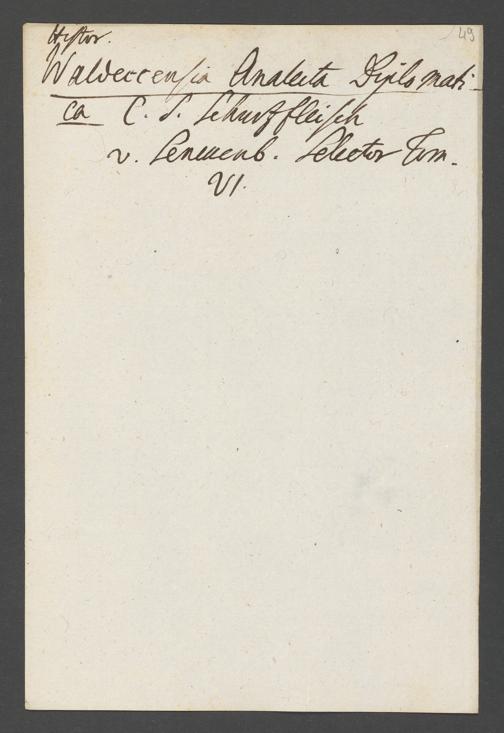 49
Histor.
Waldeccensia Analecta Diplomati-
ca C. S. Schurtzfleisch
v. Senckenb. Selector Tom.
VI.